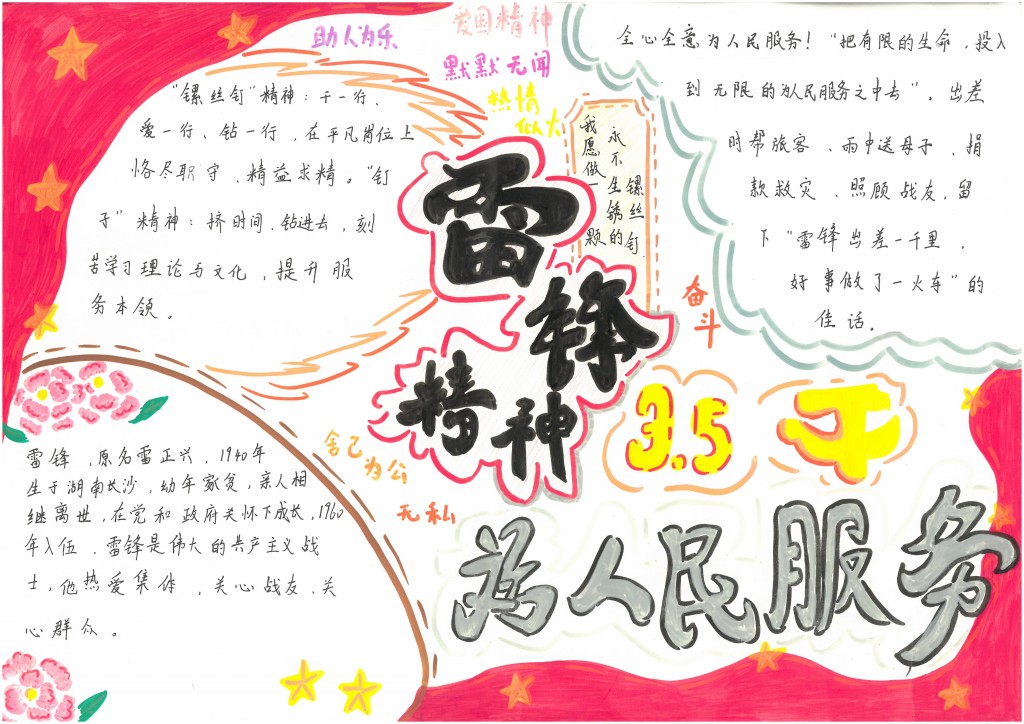 助人为乐
爱国精神
默默无闻
热情
似火
"镙丝钉"精神：干一行、
爱一行、钻一行，在平凡岗位上
恪尽职守、精益求精。"钉
子"精神：挤时间、钻进去，刻
苦学习理论与文化，提升服
务本领。
我愿做一颗
永不生锈的
镙丝钉
全心全意为人民服务！"把有限的生命，投入
到无限的为人民服务之中去"。出差
时帮旅客、雨中送母子、捐
款救灾、照顾战友，留
下"雷锋出差一千里，
好事做了一火车"的
佳话。
雷锋
精神
奋斗
3.5
舍己为公
无私
雷锋，原名雷正兴，1940年
生于湖南长沙，幼年家贫，亲人相
继离世，在党和政府关怀下成长，1960
年入伍、雷锋是伟大的共产主义战
士，他热爱集体，关心战友、关
心群众。
为人民服务